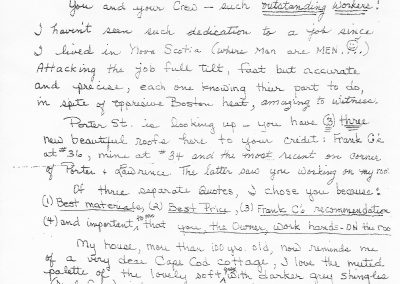 You and your Crew — such outstanding workers!
I haven't seen such dedication to a job since
I lived in Nova Scotia (where Men are MEN..)
Attacking the job full tilt, fast but accurate
and precise, each one knowing their part to do,
in spite of oppresive Boston heat, amazing to witness.
Porter St. is looking up — you have (3) three
new beautiful roofs here to your credit: Frank G's
at #36, mine at #34 and the most recent on corner
of Porter + Lawrence. The latter saw you working on my roof
Of three separate quotes, I chose you because:
(1) Best materials, (2) Best Price, (3) Frank G's recommendation
(4) and important, to me that you, the Owner, work hands-ON the roo
My house, more than 100 yrs. old, now reminds me
of a very dear Cape Cod cottage, I love the muted
palette of the lovely soft, with darker grey shingles